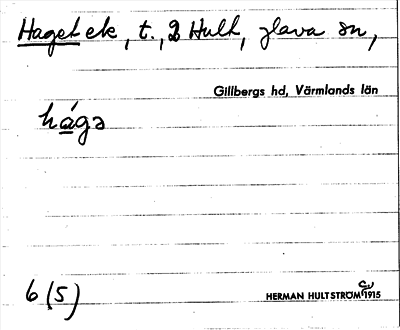 Hagelek, t., 2 Hult, Glava sn,
Gillbergs hd, Värmlands län
hágə
6 (5)
HERMAN HULTSTRÖM 1915